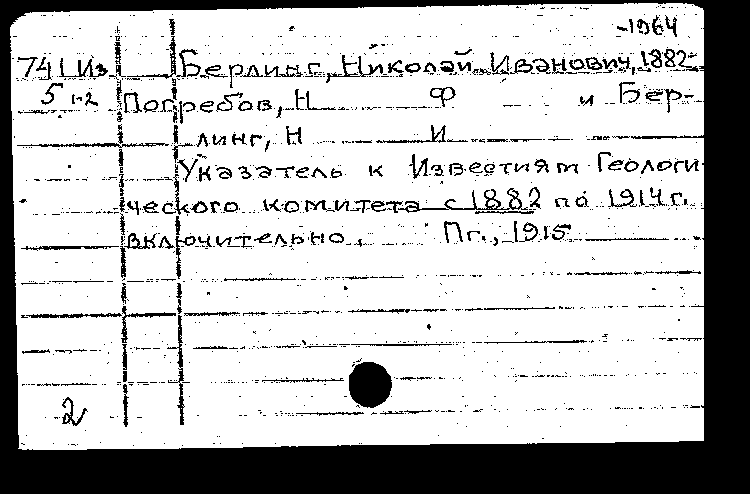 -1964
741 Из Берлинг, Николай Иванович, 1882-
5 1-2 Погребов, Н Ф и Бер-
линг, Н И
Указатель к Известиям Геологи
ческого комитета с 1882 по 1914 г.
включительно. Пг., 1915
2